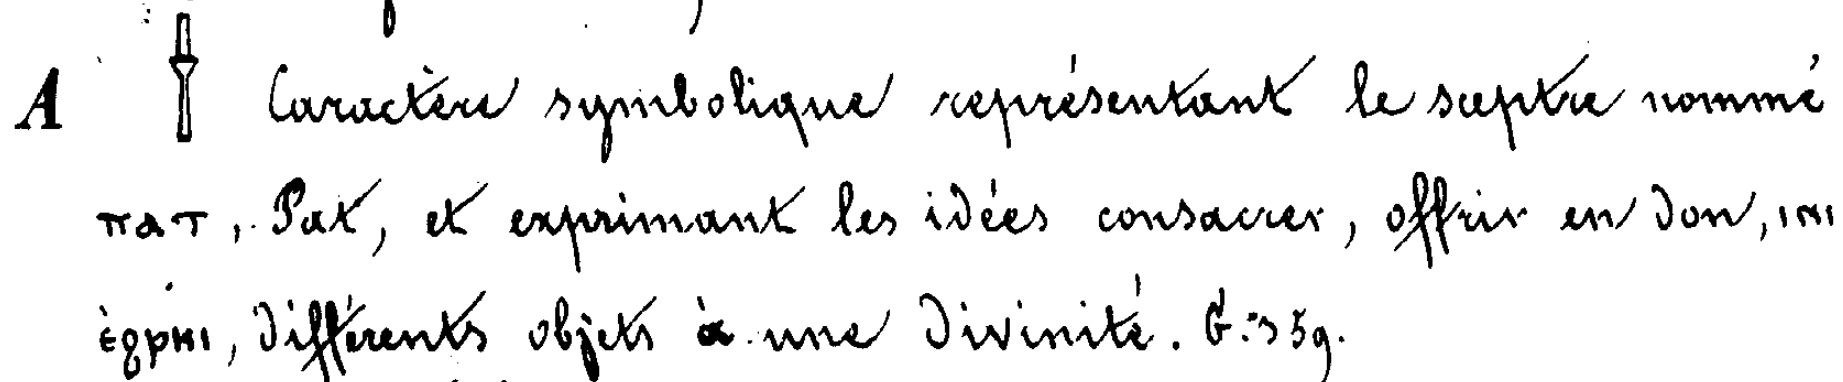 A 𓌂 Caractère symbolique représentant le sceptre nommé
ⲡⲁⲧ, Pat, et exprimant les idées consacrer, offrir en don, ⲓⲛⲓ
ⲉ̀ϩⲣⲏⲓ, différents objets à une divinité. G. 359.